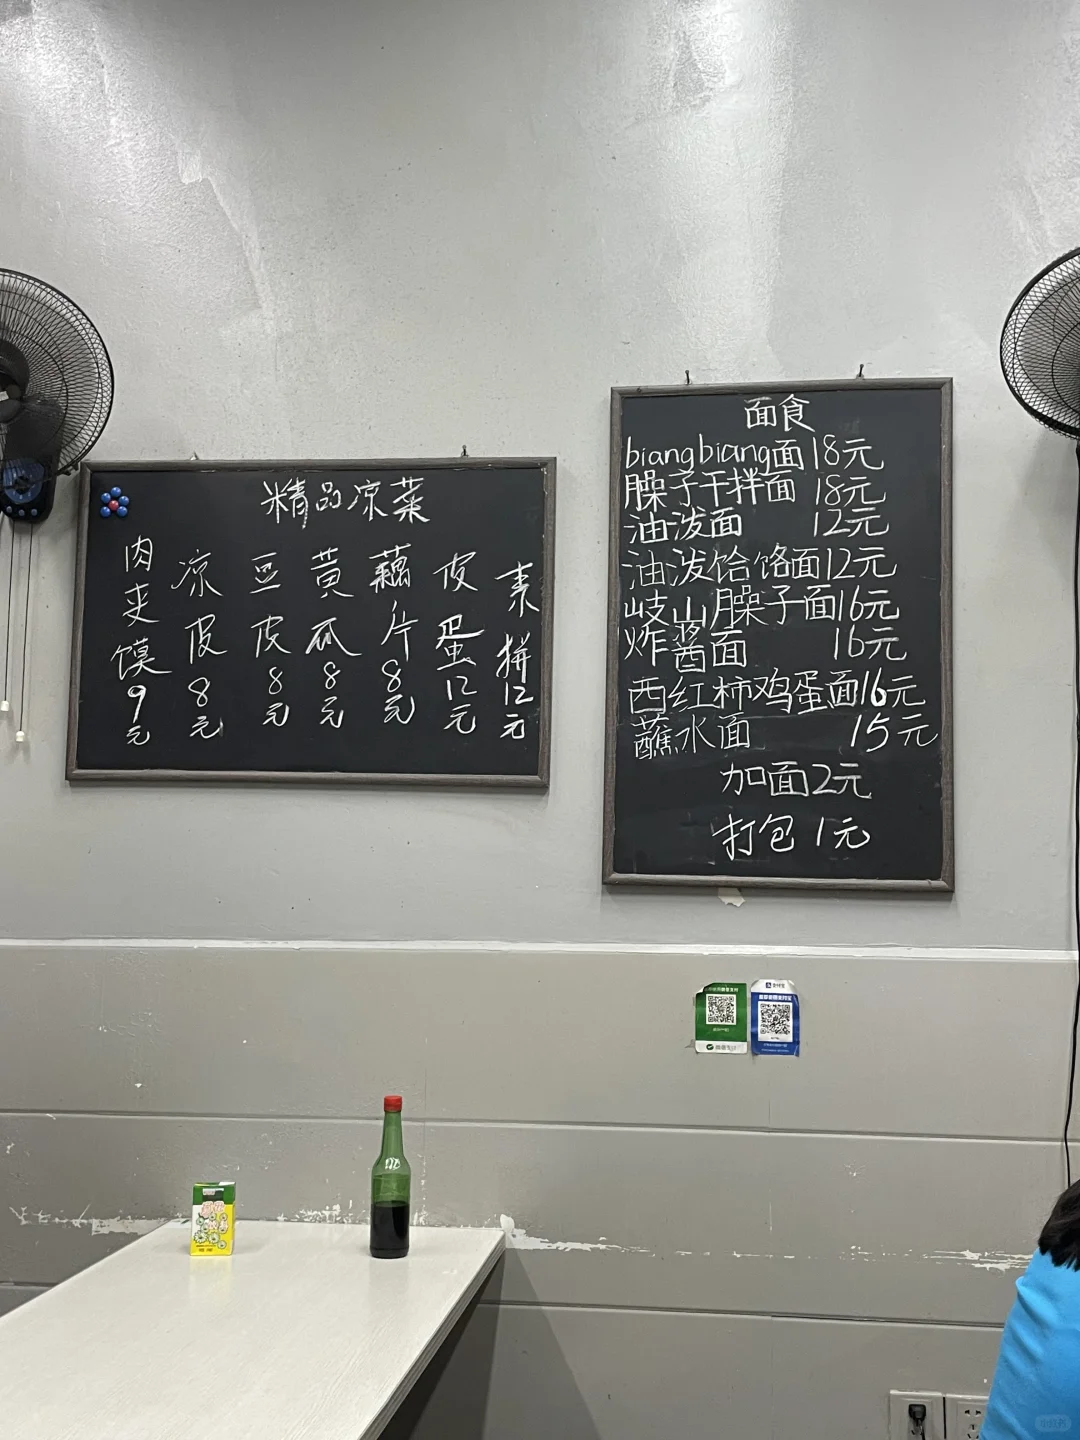 精品凉菜
肉夹馍9元
凉皮8元
豆皮8元
黄瓜8元
藕片8元
皮蛋12元
素拼12元
面食
biangbiang面18元
臊子干拌面 18元
油泼面 12元
油泼饸饹面12元
岐山臊子面16元
炸酱面 16元
西红柿鸡蛋面16元
蘸水面 15元
加面2元
打包1元
支付宝
微信支付
小红书